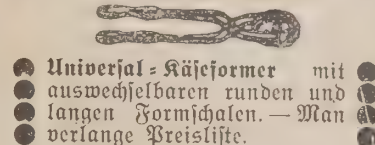 Universal-Käseformer mit
auswechselbaren runden und
langen Formschalen. — Man
verlange Preisliste.